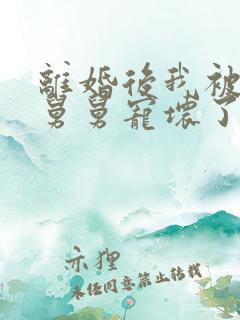 離婚後我被
舅舅寵壞了
示狸
未任同意禁止转载